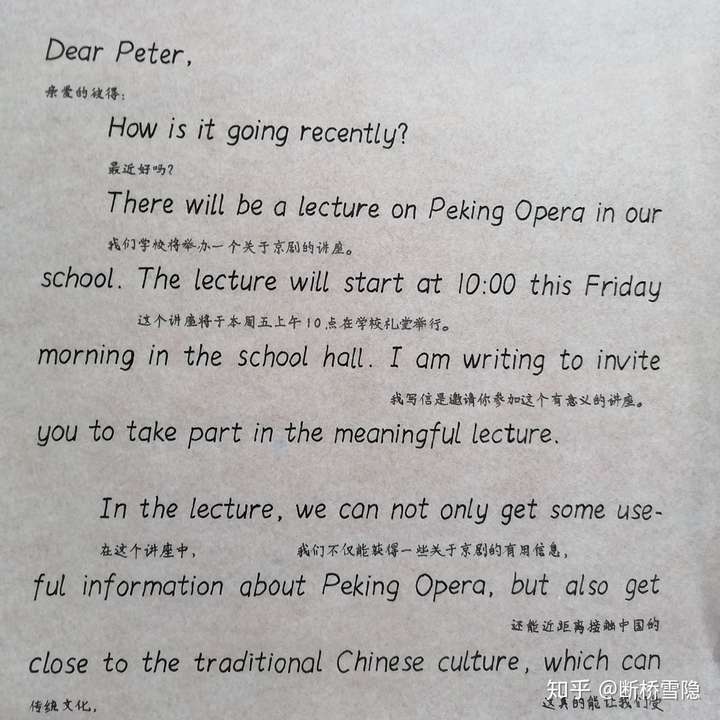 Dear Peter,
亲爱的彼得：
How is it going recently?
最近好吗？
There will be a lecture on Peking Opera in our
我们学校将举办一个关于京剧的讲座。
school. The lecture will start at 10:00 this Friday
这个讲座将于本周五上午10点在学校礼堂举行。
morning in the school hall. I am writing to invite
我写信是邀请你参加这个有意义的讲座。
you to take part in the meaningful lecture.
In the lecture, we can not only get some use-
在这个讲座中， 我们不仅能获得一些关于京剧的有用信息，
ful information about Peking Opera, but also get
还能近距离接触中国的
close to the traditional Chinese culture, which can
传统文化， 这真的能让我们受
知乎 @断桥雪隐